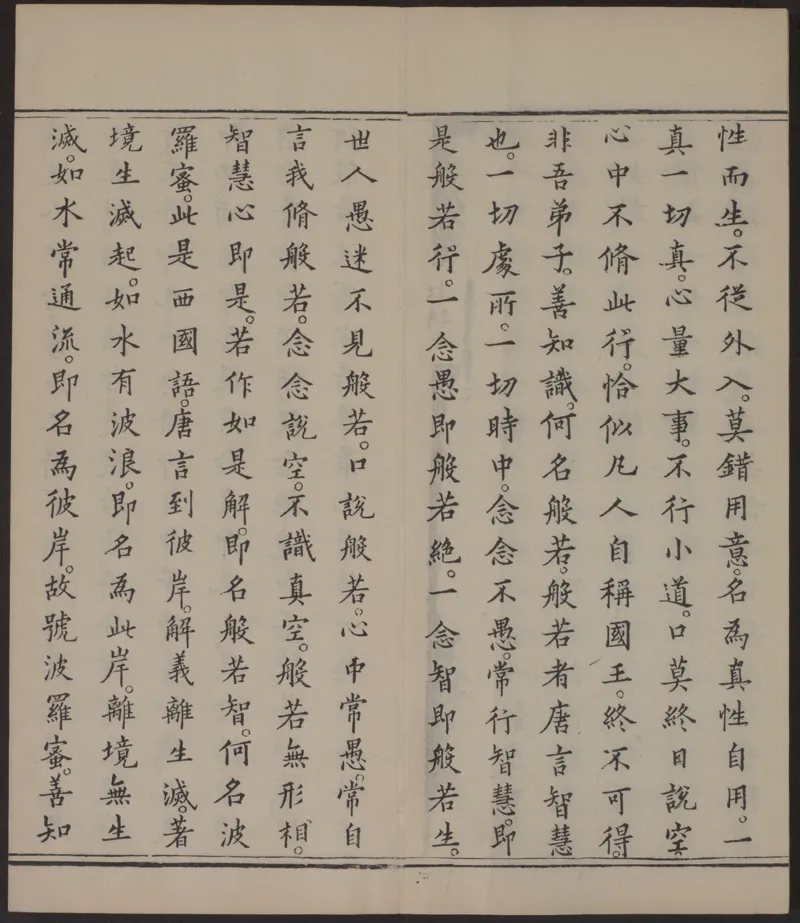 性而生。不從外入。莫錯用意。名為真性自用。一
真一切真。心量大事。不行小道。口莫終日說空。
心中不脩此行。恰似凡人自稱國王。終不可得。
非吾弟子。善知識。何名般若。般若者唐言智慧
也。一切處所。一切時中。念念不愚。常行智慧。即
是般若行。一念愚即般若絕。一念智即般若生。
世人愚迷不見般若。口說般若。心中常愚。常自
言我脩般若。念念說空。不識真空。般若無形相。
智慧心即是。若作如是解。即名般若智。何名波
羅蜜。此是西國語。唐言到彼岸。解義離生滅。著
境生滅起。如水有波浪。即名為此岸。離境無生
滅。如水常通流。即名為彼岸。故號波羅蜜。善知